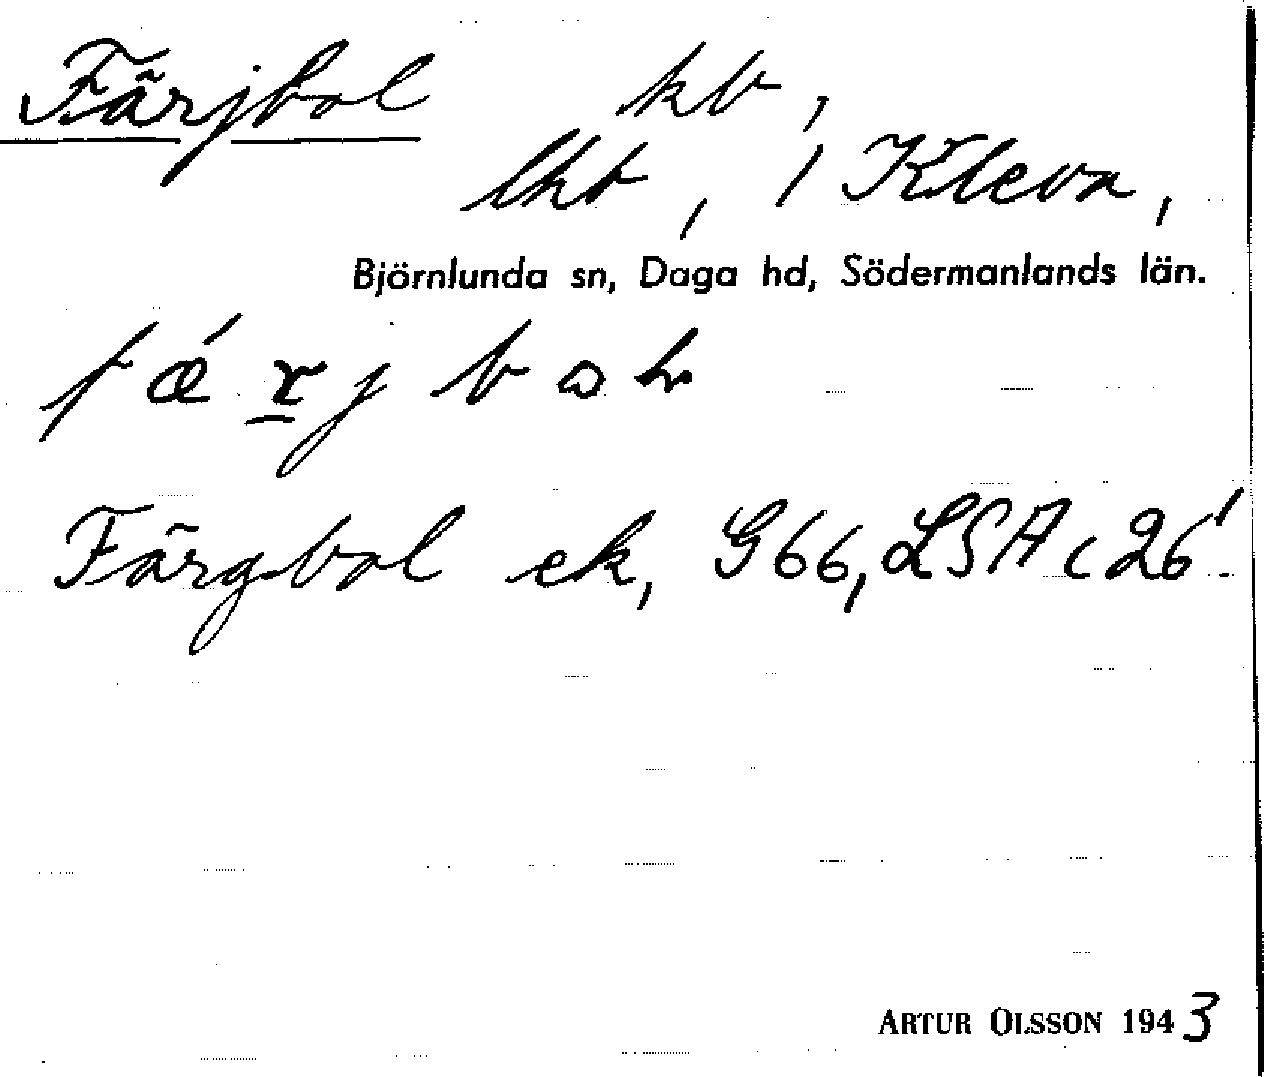 Färjbol kb,
lht, / Kleva,
Björnlunda sn, Daga hd, Södermanlands län.
f ǽ r j b ɷ
Färgbol ek, G66, LSA c 26'
ARTUR OLSSON 1943